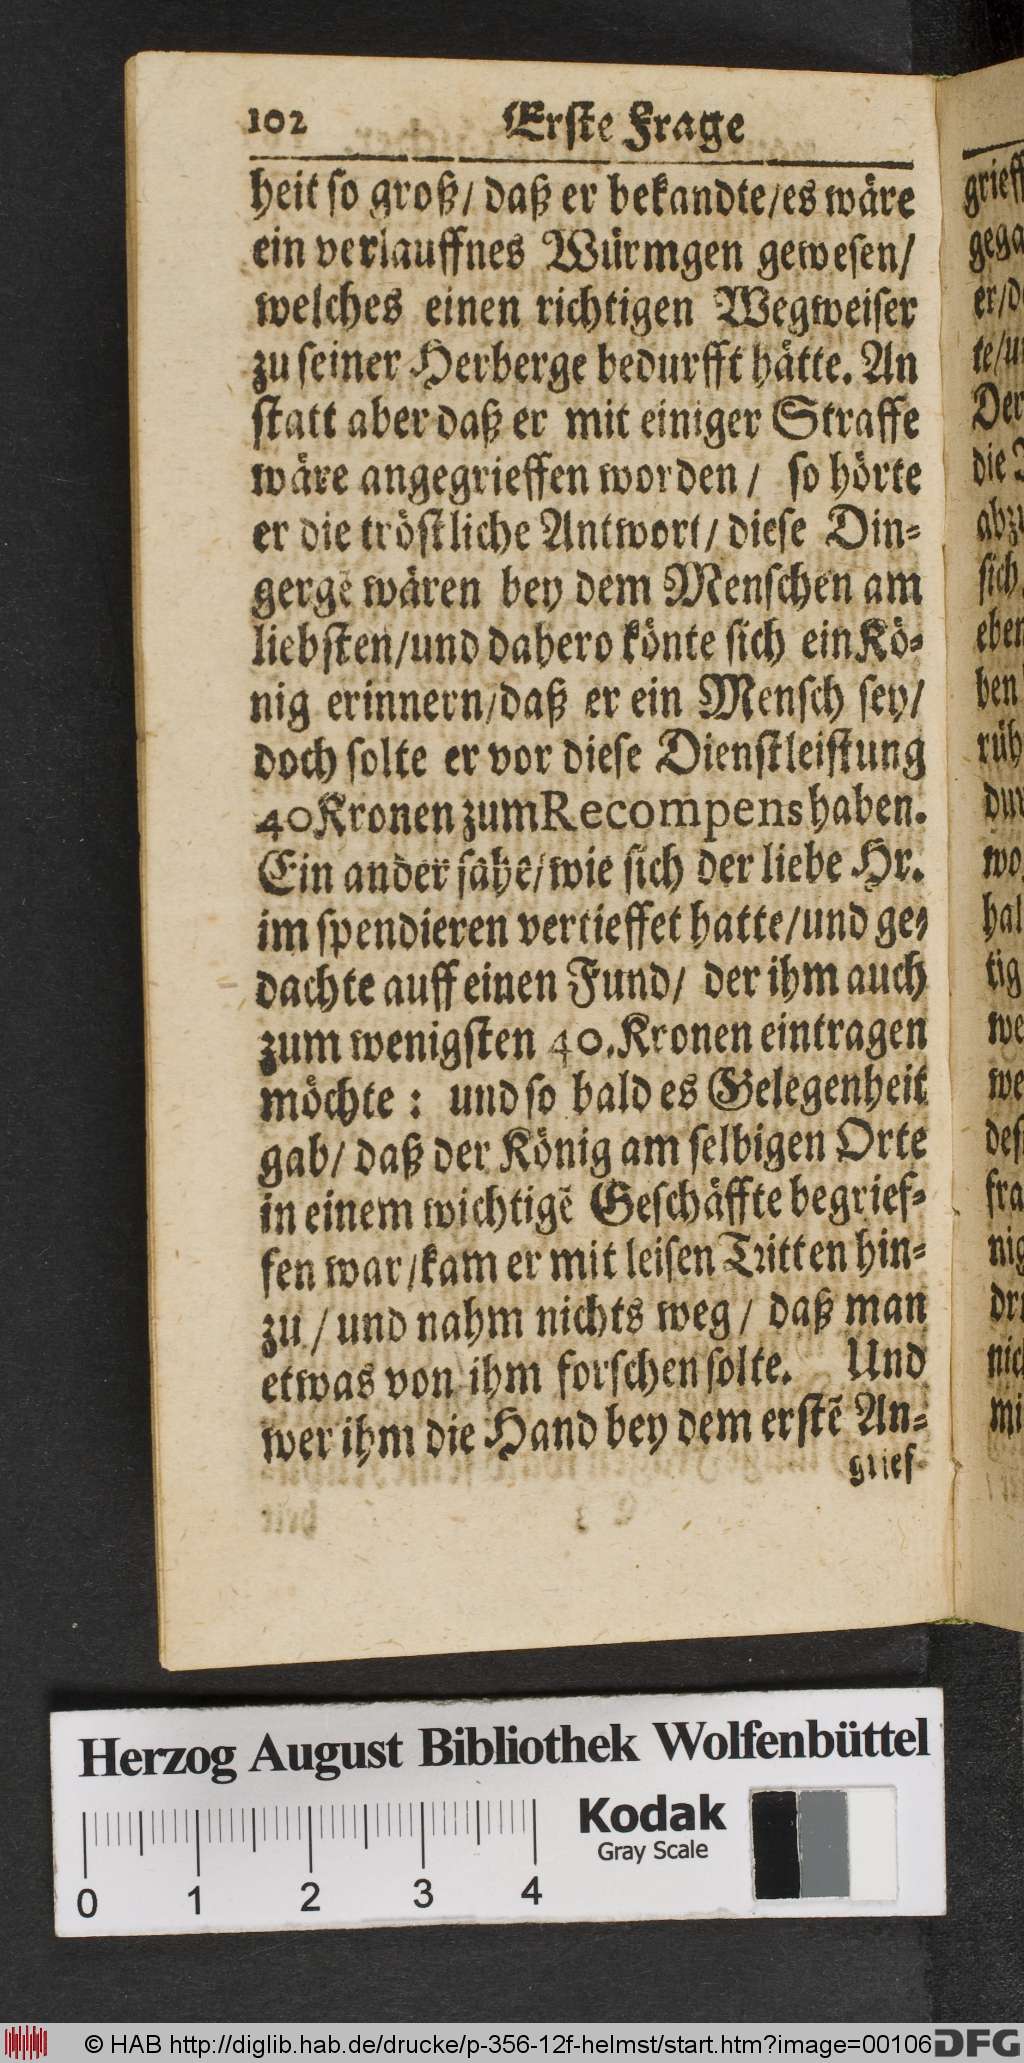 102 Erste Frage
heit so groß/ daß er bekandte/es wäre
ein verlauffnes Würmgen gewesen/
welches einen richtigen Wegweiser
zu seiner Herberge bedurfft hätte. An
statt aber daß er mit einiger Straffe
wäre angegrieffen worden/ so hörte
er die tröstliche Antwort/ diese Din-
gergẽ wären bey dem Menschen am
liebsten/und dahero könte sich ein Kö-
nig erinnern/daß er ein Mensch sey/
doch solte er vor diese Dienstleistung
40 Kronen zum Recompens haben.
Ein ander sahe/wie sich der liebe Hr.
im spendieren vertieffet hatte/und ge-
dachte auff einen Fund/ der ihm auch
zum wenigsten 40. Kronen eintragen
möchte: und so bald es Gelegenheit
gab/ daß der König am selbigen Orte
in einem wichtigẽ Geschäffte begrief-
fen war/kam er mit leisen Tritten hin-
zu/ und nahm nichts weg/ daß man
etwas von ihm forschen solte. Und
wer ihm die Hand bey dem erstẽ An-
grief-
grieff
gega
er/d
te/u
Der
die
abzu
sich
eben
ben
rüh
dur
wo
hal
tig
we
we
des
fra
nig
dri
nic
mi
Herzog August Bibliothek Wolfenbüttel
0 1 2 3 4
Kodak
Gray Scale
© HAB http://diglib.hab.de/drucke/p-356-12f-helmst/start.htm?image=00106
DFG